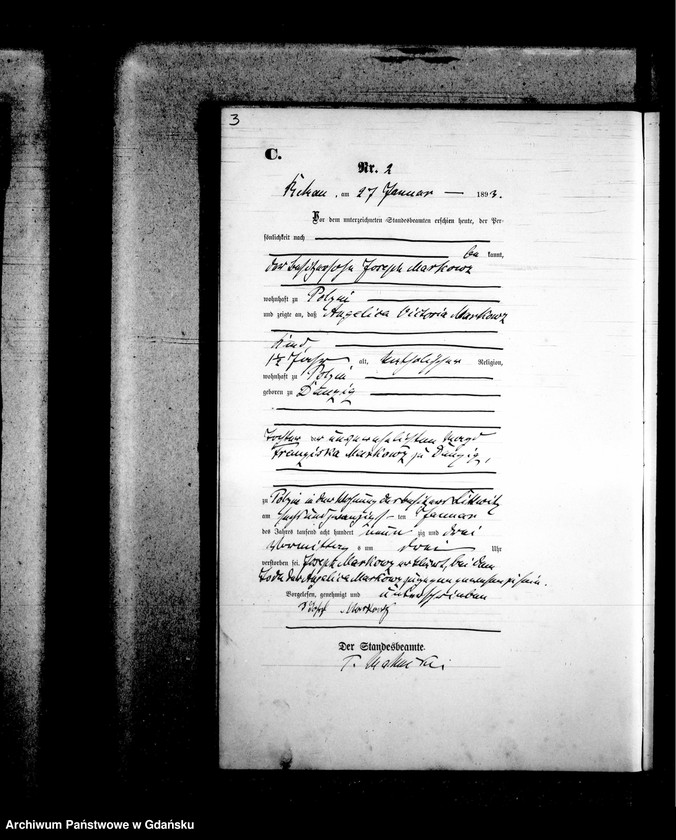 3
C.
Nr. 2
am 27 Januar — 1893.
Vor dem unterzeichneten Standesbeamten erschien heute, der Per-
sönlichkeit nach
be kannt,
der Besitzersohn Joseph Markowz
wohnhaft zu Polzin
und zeigte an, daß Angelica Victoria Markowz
Kind,
1½ Jahr alt, katholischer Religion,
wohnhaft zu Polzin
geboren zu Danzig
Tochter der unverehelichten Magd
Franziska Markowz zu Danzig,
zu Polzin in der Wohnung des Besitzers
am sechsundzwanzigsten Januar
des Jahres tausend acht hundert neun zig und drei
Vormittag s um drei Uhr
verstorben sei. Joseph Markowz erklärt, bei dem
Tode der Angelica Markowz zugegen gewesen zu sein.
Vorgelesen, genehmigt und unterschrieben
Der Standesbeamte.
Archiwum Państwowe w Gdańsku